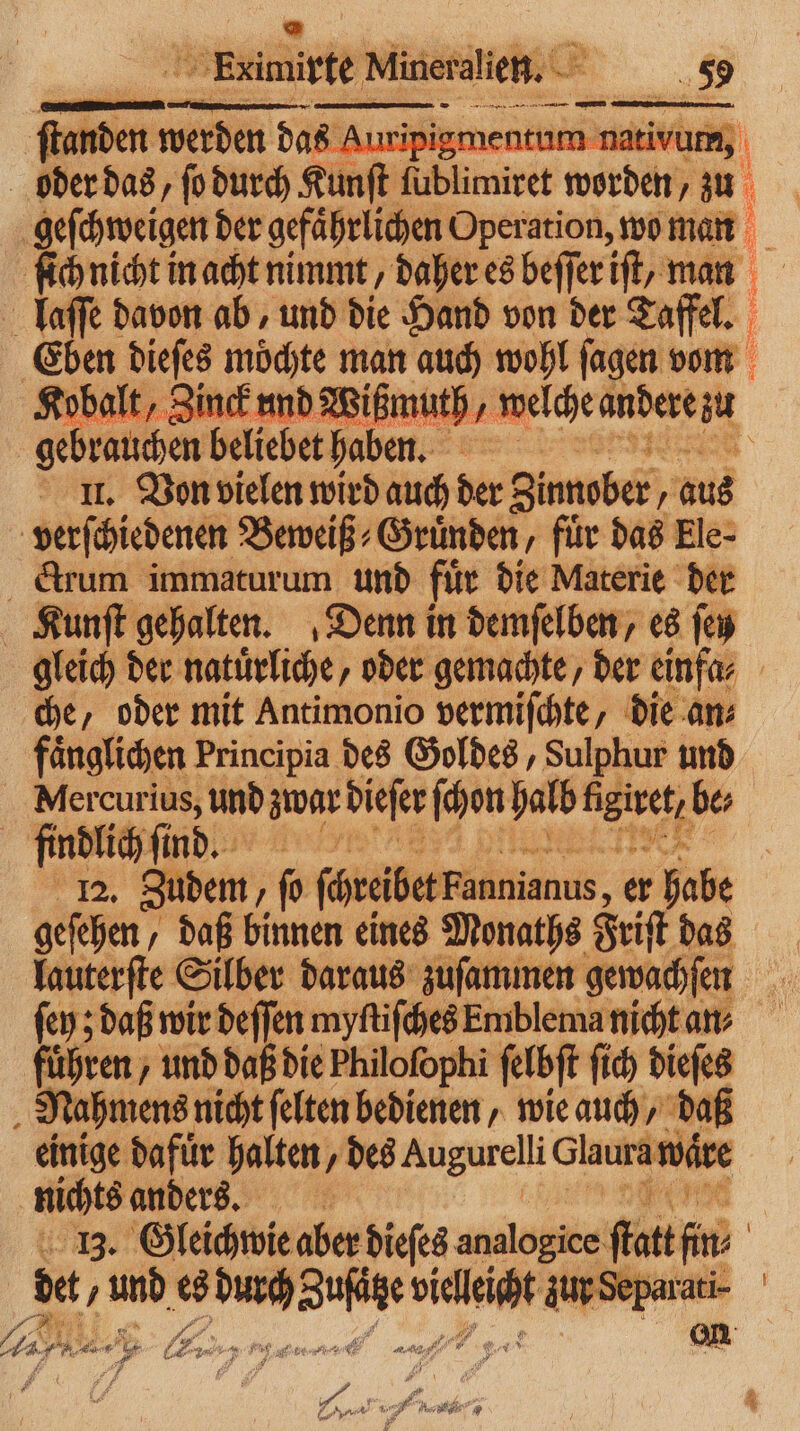 Eximirte Mineralien. 59
ſtanden werden das Auripigmentum nativum,
oder das, ſo durch Kunſt ſublimiret worden, zu
geſchweigen der gefaͤhrlichen Operation, wo man
ſich nicht in acht nimmt, daher es beſſer iſt, man
laſſe davon ab, und die Hand von der Taffel.
Eben dieſes moͤchte man auch wohl ſagen vom
Kobalt, Zinck und Wißmuth, welche andere zu
gebrauchen beliebet haben.
11. Von vielen wird auch der Zinnober, aus
verſchiedenen Beweiß⸗Gruͤnden, fuͤr das Ele-
ctrum immaturum und fuͤr die Materie der
Kunſt gehalten. Denn in demſelben, es ſey
gleich der natuͤrliche, oder gemachte, der einfa⸗
che, oder mit Antimonio vermiſchte, die an⸗
faͤnglichen Principia des Goldes, Sulphur und
Mercurius, und zwar dieſer ſchon halb figiret, be⸗
findlich ſind.
12. Zudem, ſo ſchreibet Fannianus, er habe
geſehen, daß binnen eines Monaths Friſt das
lauterſte Silber daraus zuſammen gewachſen
ſey; daß wir deſſen myſtiſches Emblema nicht an⸗
fuͤhren, und daß die Philoſophi ſelbſt ſich dieſes
Nahmens nicht ſelten bedienen, wie auch, daß
einige dafuͤr halten, des Augurelli Glaura waͤre
nichts anders.
13. Gleichwie aber dieſes analogice ſtatt fin⸗
det, und es durch Zuſaͤtze vielleicht zur Separati-
on